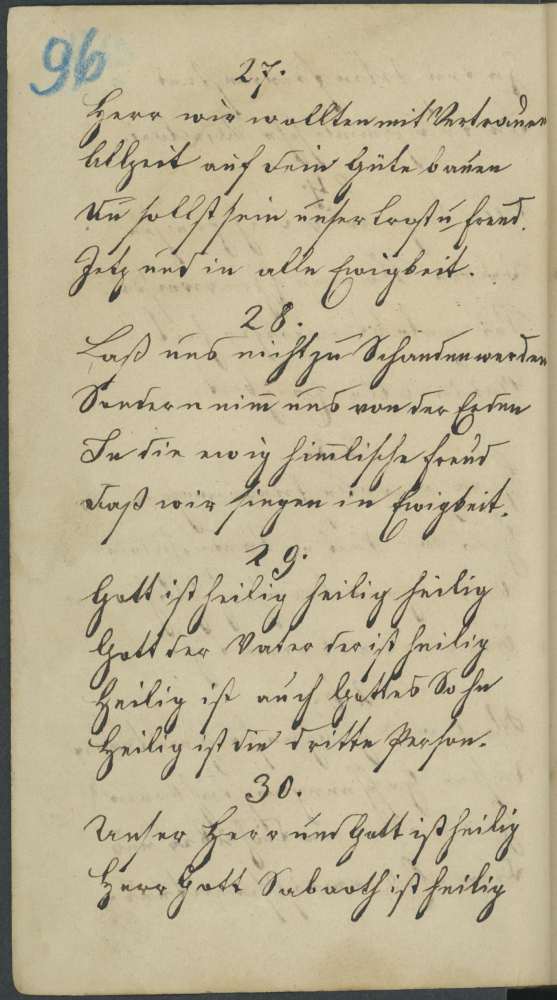 96
27.
Herr wir wollten mit Vertrauen
Allzeit auf dein Güte bauen
Du sollst sein unser Trost u freud.
Jetz und in alle Ewigkeit.
28.
Laß uns nicht zu Schanden werden
Sondern nim̅ uns von der Erden
In die ewig him̅lische freud
daß wir singen in Ewigkeit.
29.
Gott ist heilig heilig heilig
Gott der Vater der ist heilig
Heilig ist auch Gottes Sohn
Heilig ist die dritte Person.
30.
Unser Herr und Gott ist heilig
Herr Gott Sabaoth ist heilig